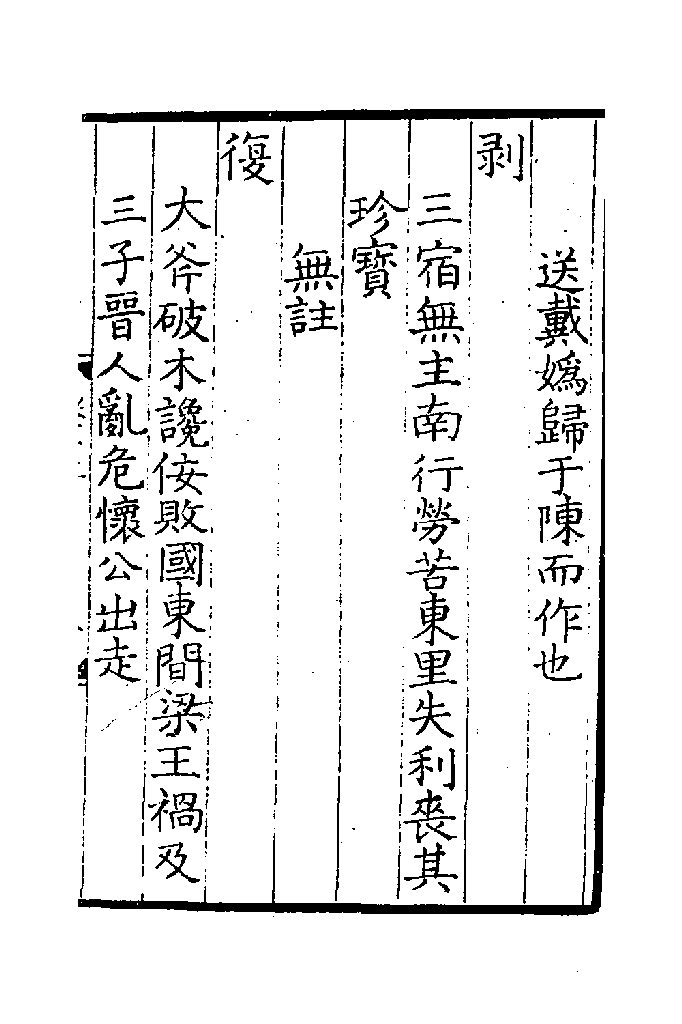 送戴嬀歸于陳而作也
剥
三宿無主南行勞苦東里失利喪其
珍寶
無註
復
大斧破木讒佞敗國東間梁王禍及
三子晉人亂危懷公出走